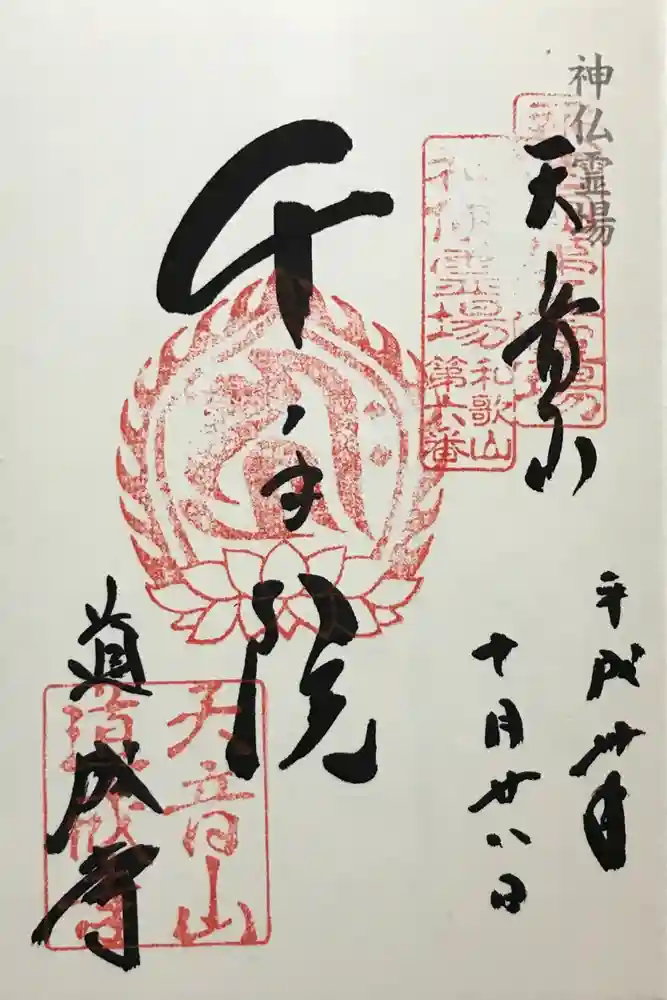 神仏霊場
天音山
神仏霊場
和歌山
第六番
千手院
道成寺
天音山
道成寺
平成卅年
十月廿八日